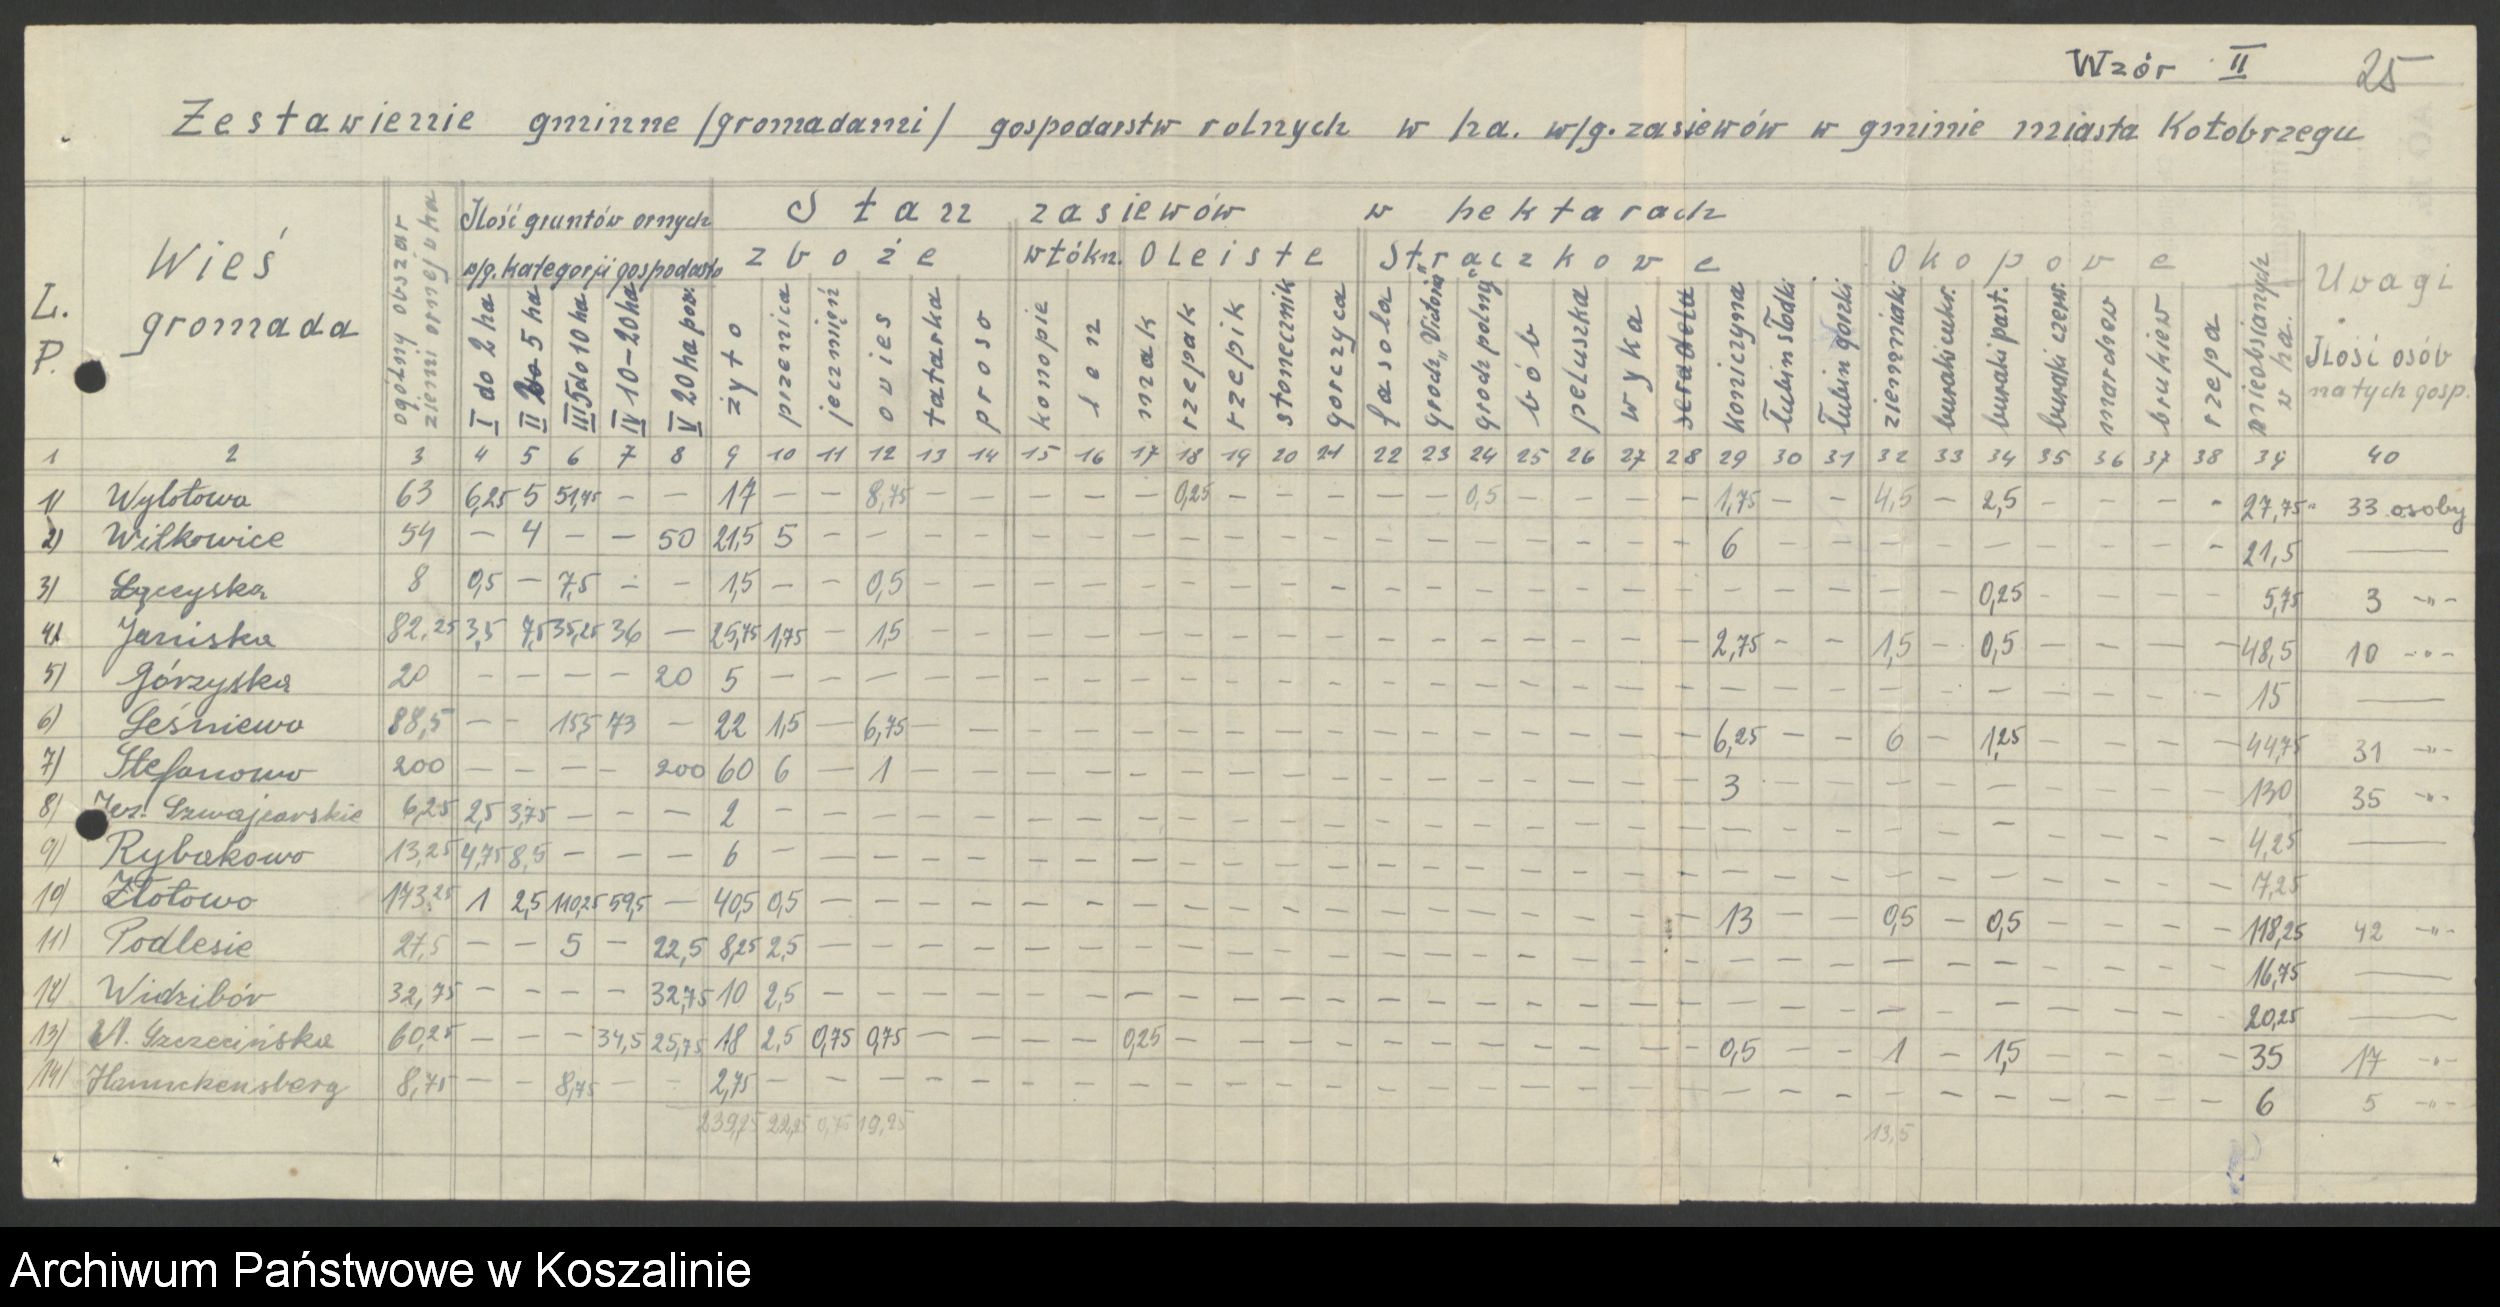 Wzór II 25
Zestawienie gminne /gromadami/ gospodarstw rolnych w ha. w/g. zasiewów w gminie miasta Kołobrzegu
L. P.
Wieś gromada
ogólny obszar ziemi ornej w ha
Ilość gruntów ornych w/g. kategorji gospodarstw
Stan zasiewów w hektarach
zboże włókn. Oleiste Strączkowe Okopowe
I do 2 ha II do 5 ha III 5 do 10 ha IV 10-20 ha V 20 ha pow.
żyto pszenica jęczmień owies tatarka proso konopie len mak rzepak rzepik słonecznik gorczyca fasola groch "Victoria" groch "polny" bób peluszka wyka seradela koniczyna łubin słodki łubin gorzki ziemniaki buraki cukr. buraki past. buraki czerw. marchew brukiew rzepa nieobsianych w ha.
Uwagi
Ilość osób na tych gosp.
1 2 3 4 5 6 7 8 9 10 11 12 13 14 15 16 17 18 19 20 21 22 23 24 25 26 27 28 29 30 31 32 33 34 35 36 37 38 39 40
1/ Wylotowa 63 6,25 5 51,75 – – 17 – – 8,75 – – – – – 0,25 – – – – – 0,5 – – – – 1,75 – – 4,5 – 2,5 – – – - 27,75 33 osoby
2/ Wilkowice 54 – 4 – – 50 21,5 5 – – – – – – – – – – – – – – – – – – 6 – – – – – – – – - 21,5 —
3/ Łęczyska 8 0,5 – 7,5 – – 1,5 – – 0,5 – – – – – – – – – – – – – – – – – – – – – 0,25 – – – – 5,75 3 -"-
4/ Janiska 82,25 3,5 7,5 35,25 36 – 25,75 1,75 – 1,5 – – – – – – – – – – – – – – – – 2,75 – – 1,5 – 0,5 – – – – 48,5 10 -"-
5/ Górzyska 20 – – – – 20 5 – – – – – – – – – – – – – – – – – – – – – – – – – – – – – 15 —
6/ Leśniewo 88,5 – – 15,5 73 – 22 1,5 – 6,75 – – – – – – – – – – – – – – – – 6,25 – – 6 – 1,25 – – – – 44,75 31 -"-
7/ Stefanowo 200 – – – – 200 60 6 – 1 – – – – – – – – – – – – – – – – 3 – – – – – – – – – 130 35 -"-
8/ Jez. Szwajcarskie 6,25 2,5 3,75 – – – 2 – – – – – – – – – – – – – – – – – – – – – – – – – – – – – 4,25 —
9/ Rybakowo 13,25 4,75 8,5 – – – 6 – – – – – – – – – – – – – – – – – – – – – – – – – – – – – 7,25
10/ Złotowo 173,25 1 2,5 110,25 59,5 – 40,5 0,5 – – – – – – – – – – – – – – – – – – 13 – – 0,5 – 0,5 – – – – 118,25 42 -"-
11/ Podlesie 27,5 – – 5 – 22,5 8,25 2,5 – – – – – – – – – – – – – – – – – – – – – – – – – – – – 16,75 —
12/ Widzibór 32,75 – – – – 32,75 10 2,5 – – – – – – – – – – – – – – – – – – – – – – – – – – – – 20,25 —
13/ Ul. Szczecińska 60,25 – – – 34,5 25,75 18 2,5 0,75 0,75 – – – – 0,25 – – – – – – – – – – – 0,5 – – 1 – 1,5 – – – – 35 17 -"-
14/ Hannckensberg 8,75 – – 8,75 – – 2,75 – – – – – – – – – – – – – – – – – – – – – – – – – – – – – 6 5 -"-
239,25 22,25 0,75 19,25 13,5
Archiwum Państwowe w Koszalinie